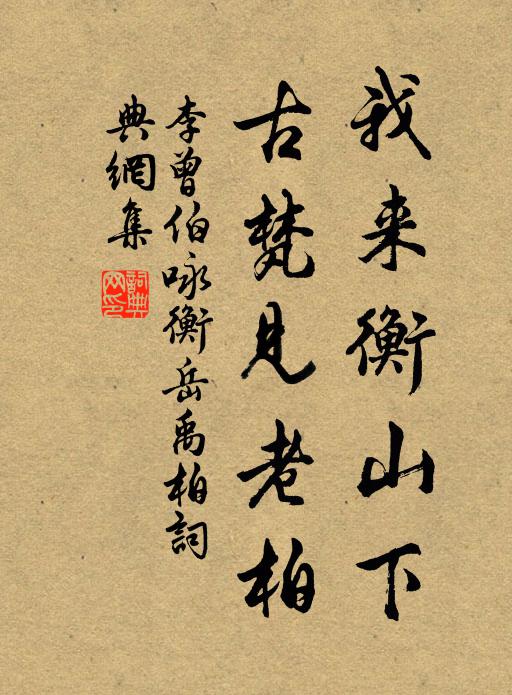 我来衡山下
古梵見老柏
李曾伯咏衡岳禹柏詞
典網集
詞典
网印